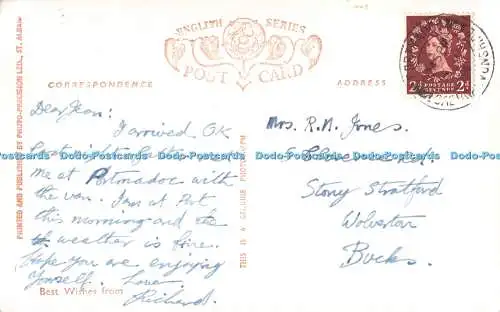 ENGLISH SERIES
POST CARD
CORRESPONDENCE
ADDRESS
POSTAGE REVENUE
2d 2d
PRINTED AND PUBLISHED BY PHOTO-PRECISION LTD., ST. ALBANS
THIS IS A GENUINE PHOTOGRAPH
Dear Jean:
I arrived OK
last night
me at Portmadoc with
the van. I am at Port
this morning and the
weather is fine.
Hope you are enjoying
yourself. Love,
Richard.
Best Wishes from
Mrs. R. M. Jones.
Stony Stratford
Wolverton
Bucks.
Dodo Postcards Dodo Postcards Dodo Postcards Dodo Postcards Dodo Postcards